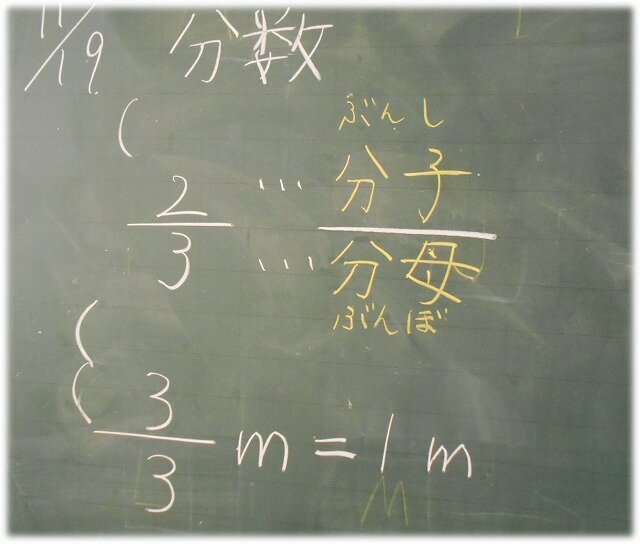 11/19 分数
ぶんし
2/3 … 分子
… 分母
ぶんぼ
3/3 m = 1 m